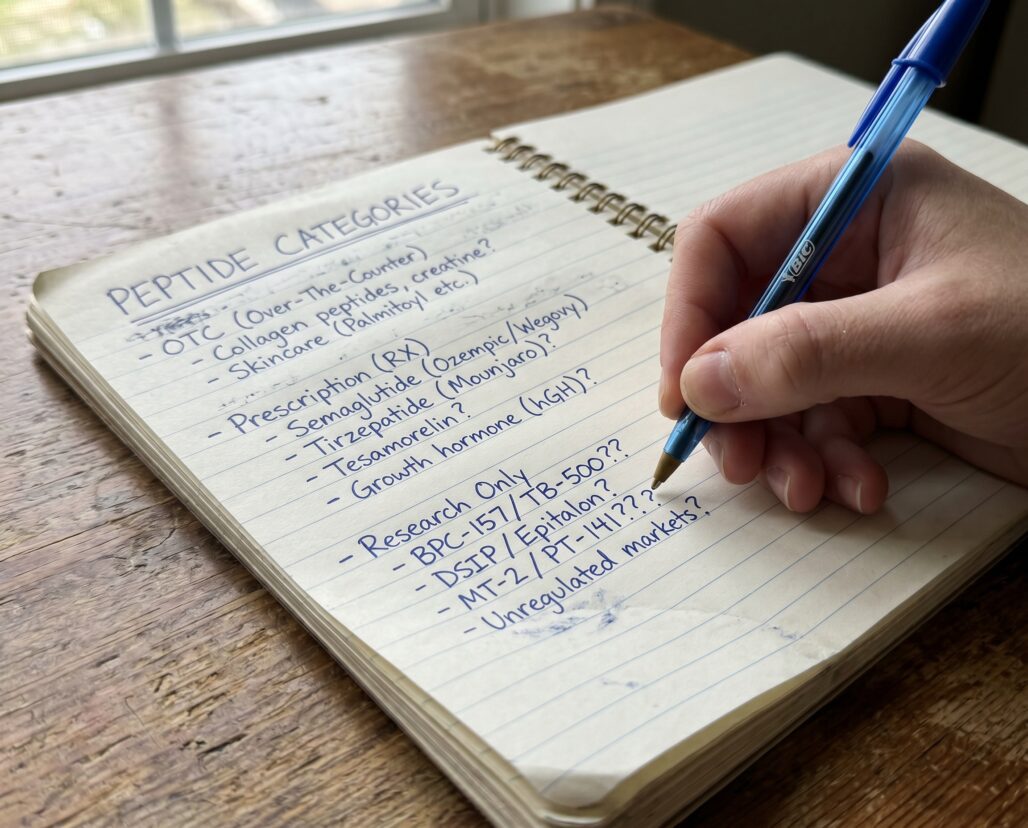 PEPTIDE CATEGORIES
- OTC (Over-The-Counter)
- Collagen peptides, creatine?
- Skincare (Palmitoyl etc.)
- Prescription (RX)
- Semaglutide (Ozempic/Wegovy)
- Tirzepatide (Mounjaro)?
- Tesamorelin?
- Growth hormone (hGH)?
- Research Only
- BPC-157/TB-500??
- DSIP/Epitalon?
- MT-2/PT-141???
- Unregulated markets?
BIC